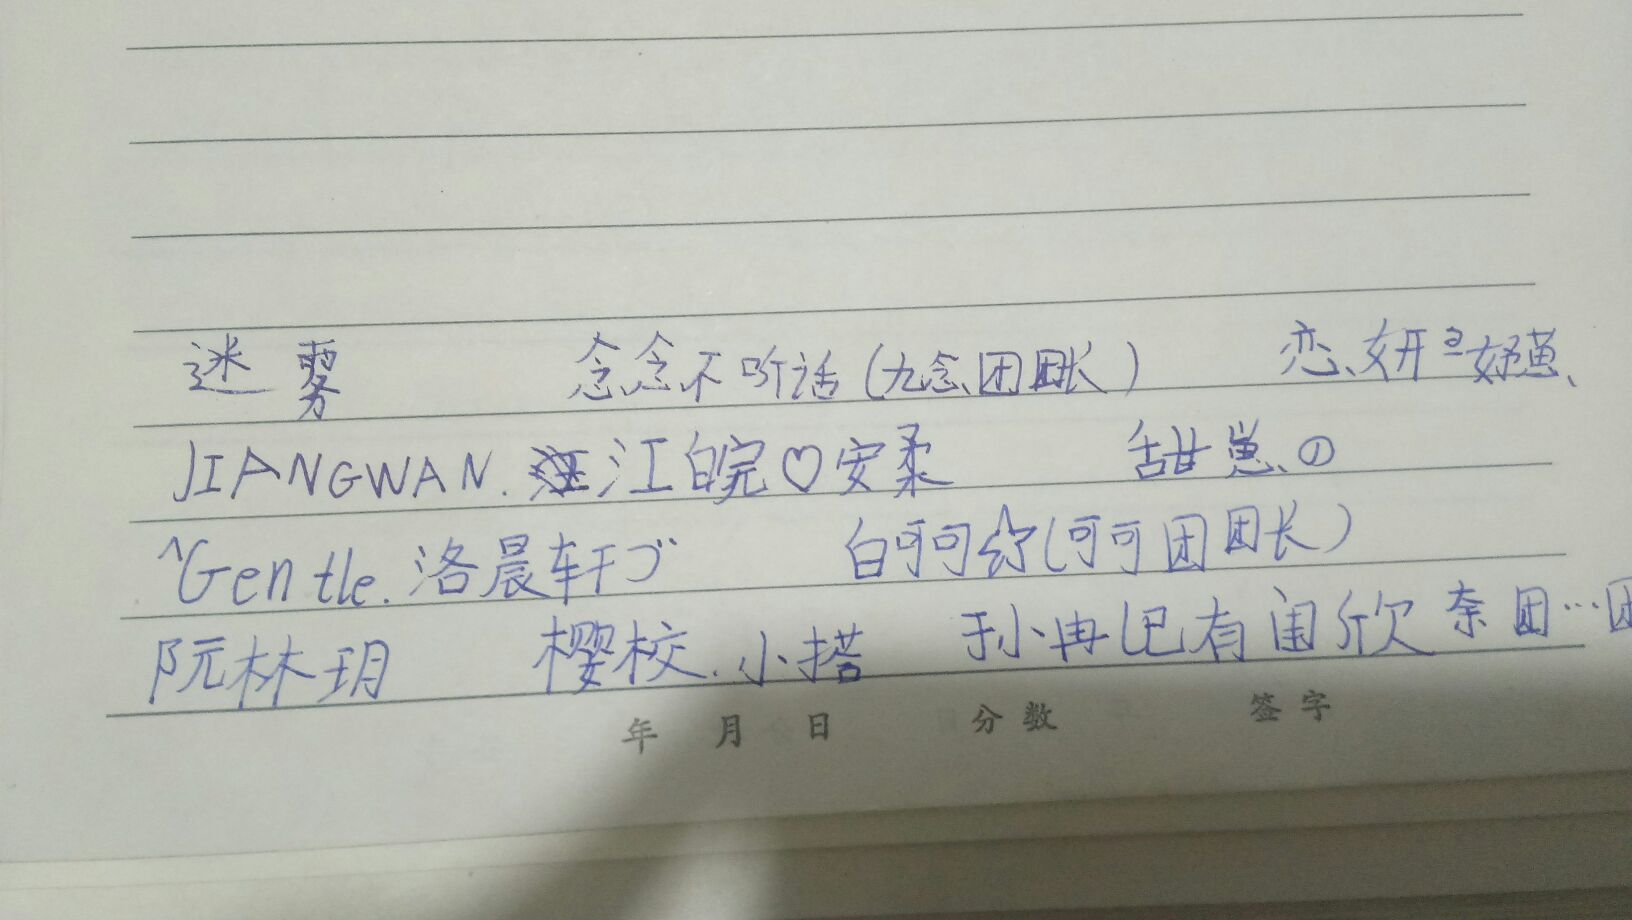 迷雾 念念不听话(九念团团长) 恋、妍
JIANGWAN. 江皖♡安柔 甜崽、の
Gentle. 洛晨轩 白可可(可可团团长)
阮林玥 樱校.小搭 孙冉 有闺欣 奈团…团
年 月 日 分数 签字